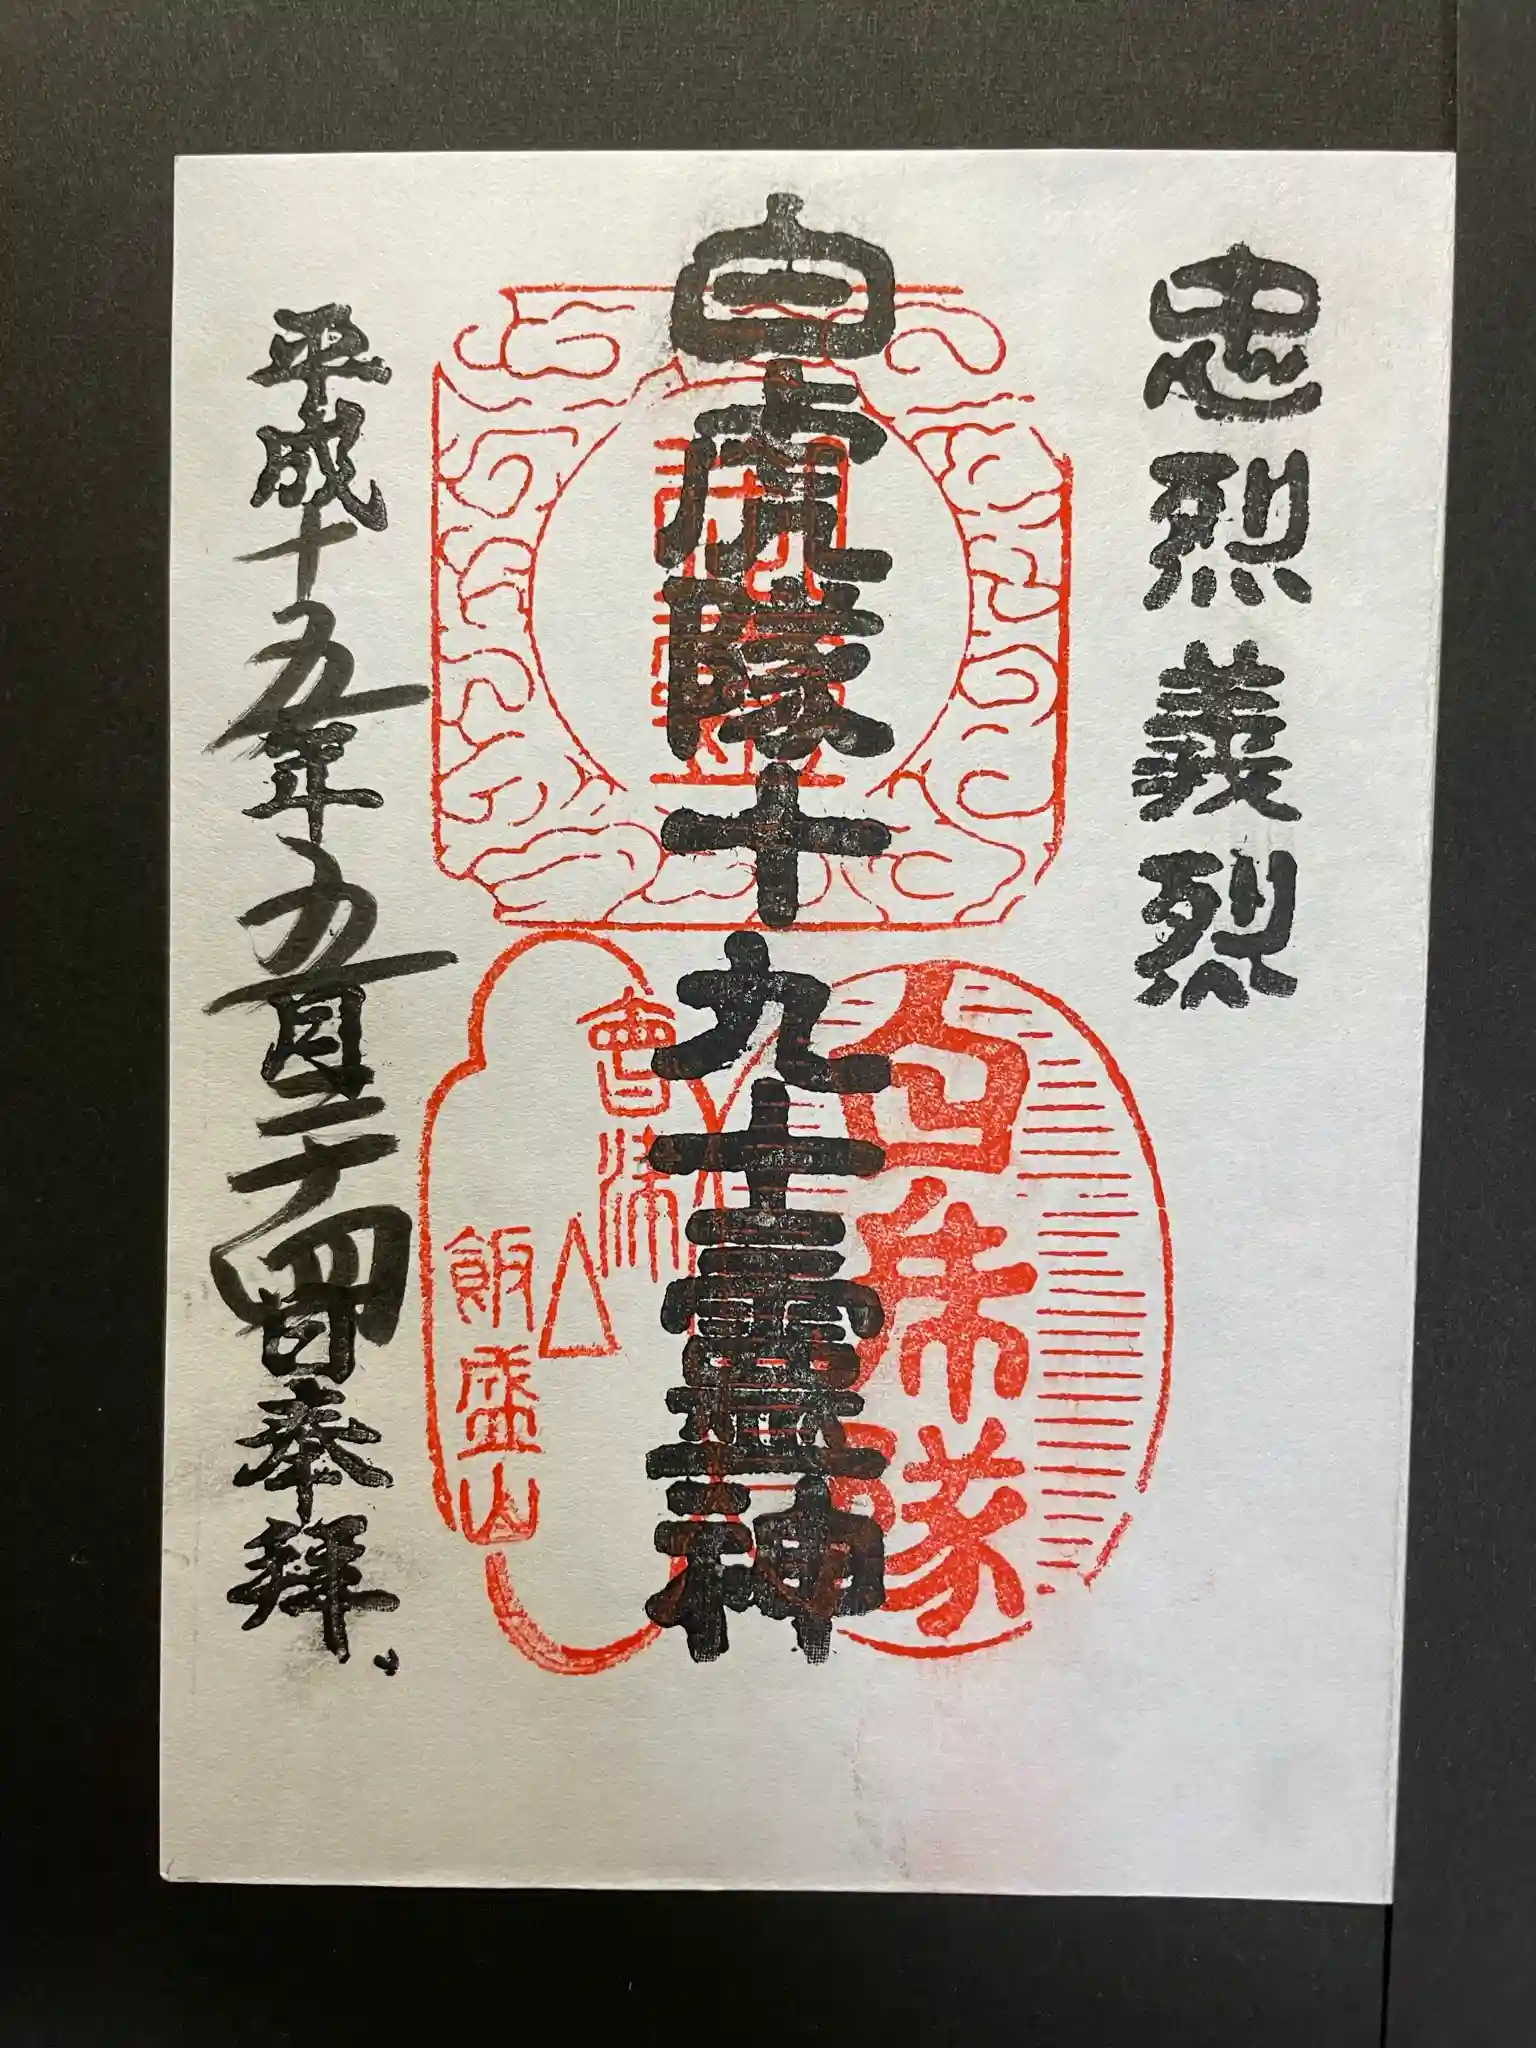 忠烈義烈
白虎隊十九士靈神
白虎隊
會津
飯盛山
平成十五年五月二十四日奉拝